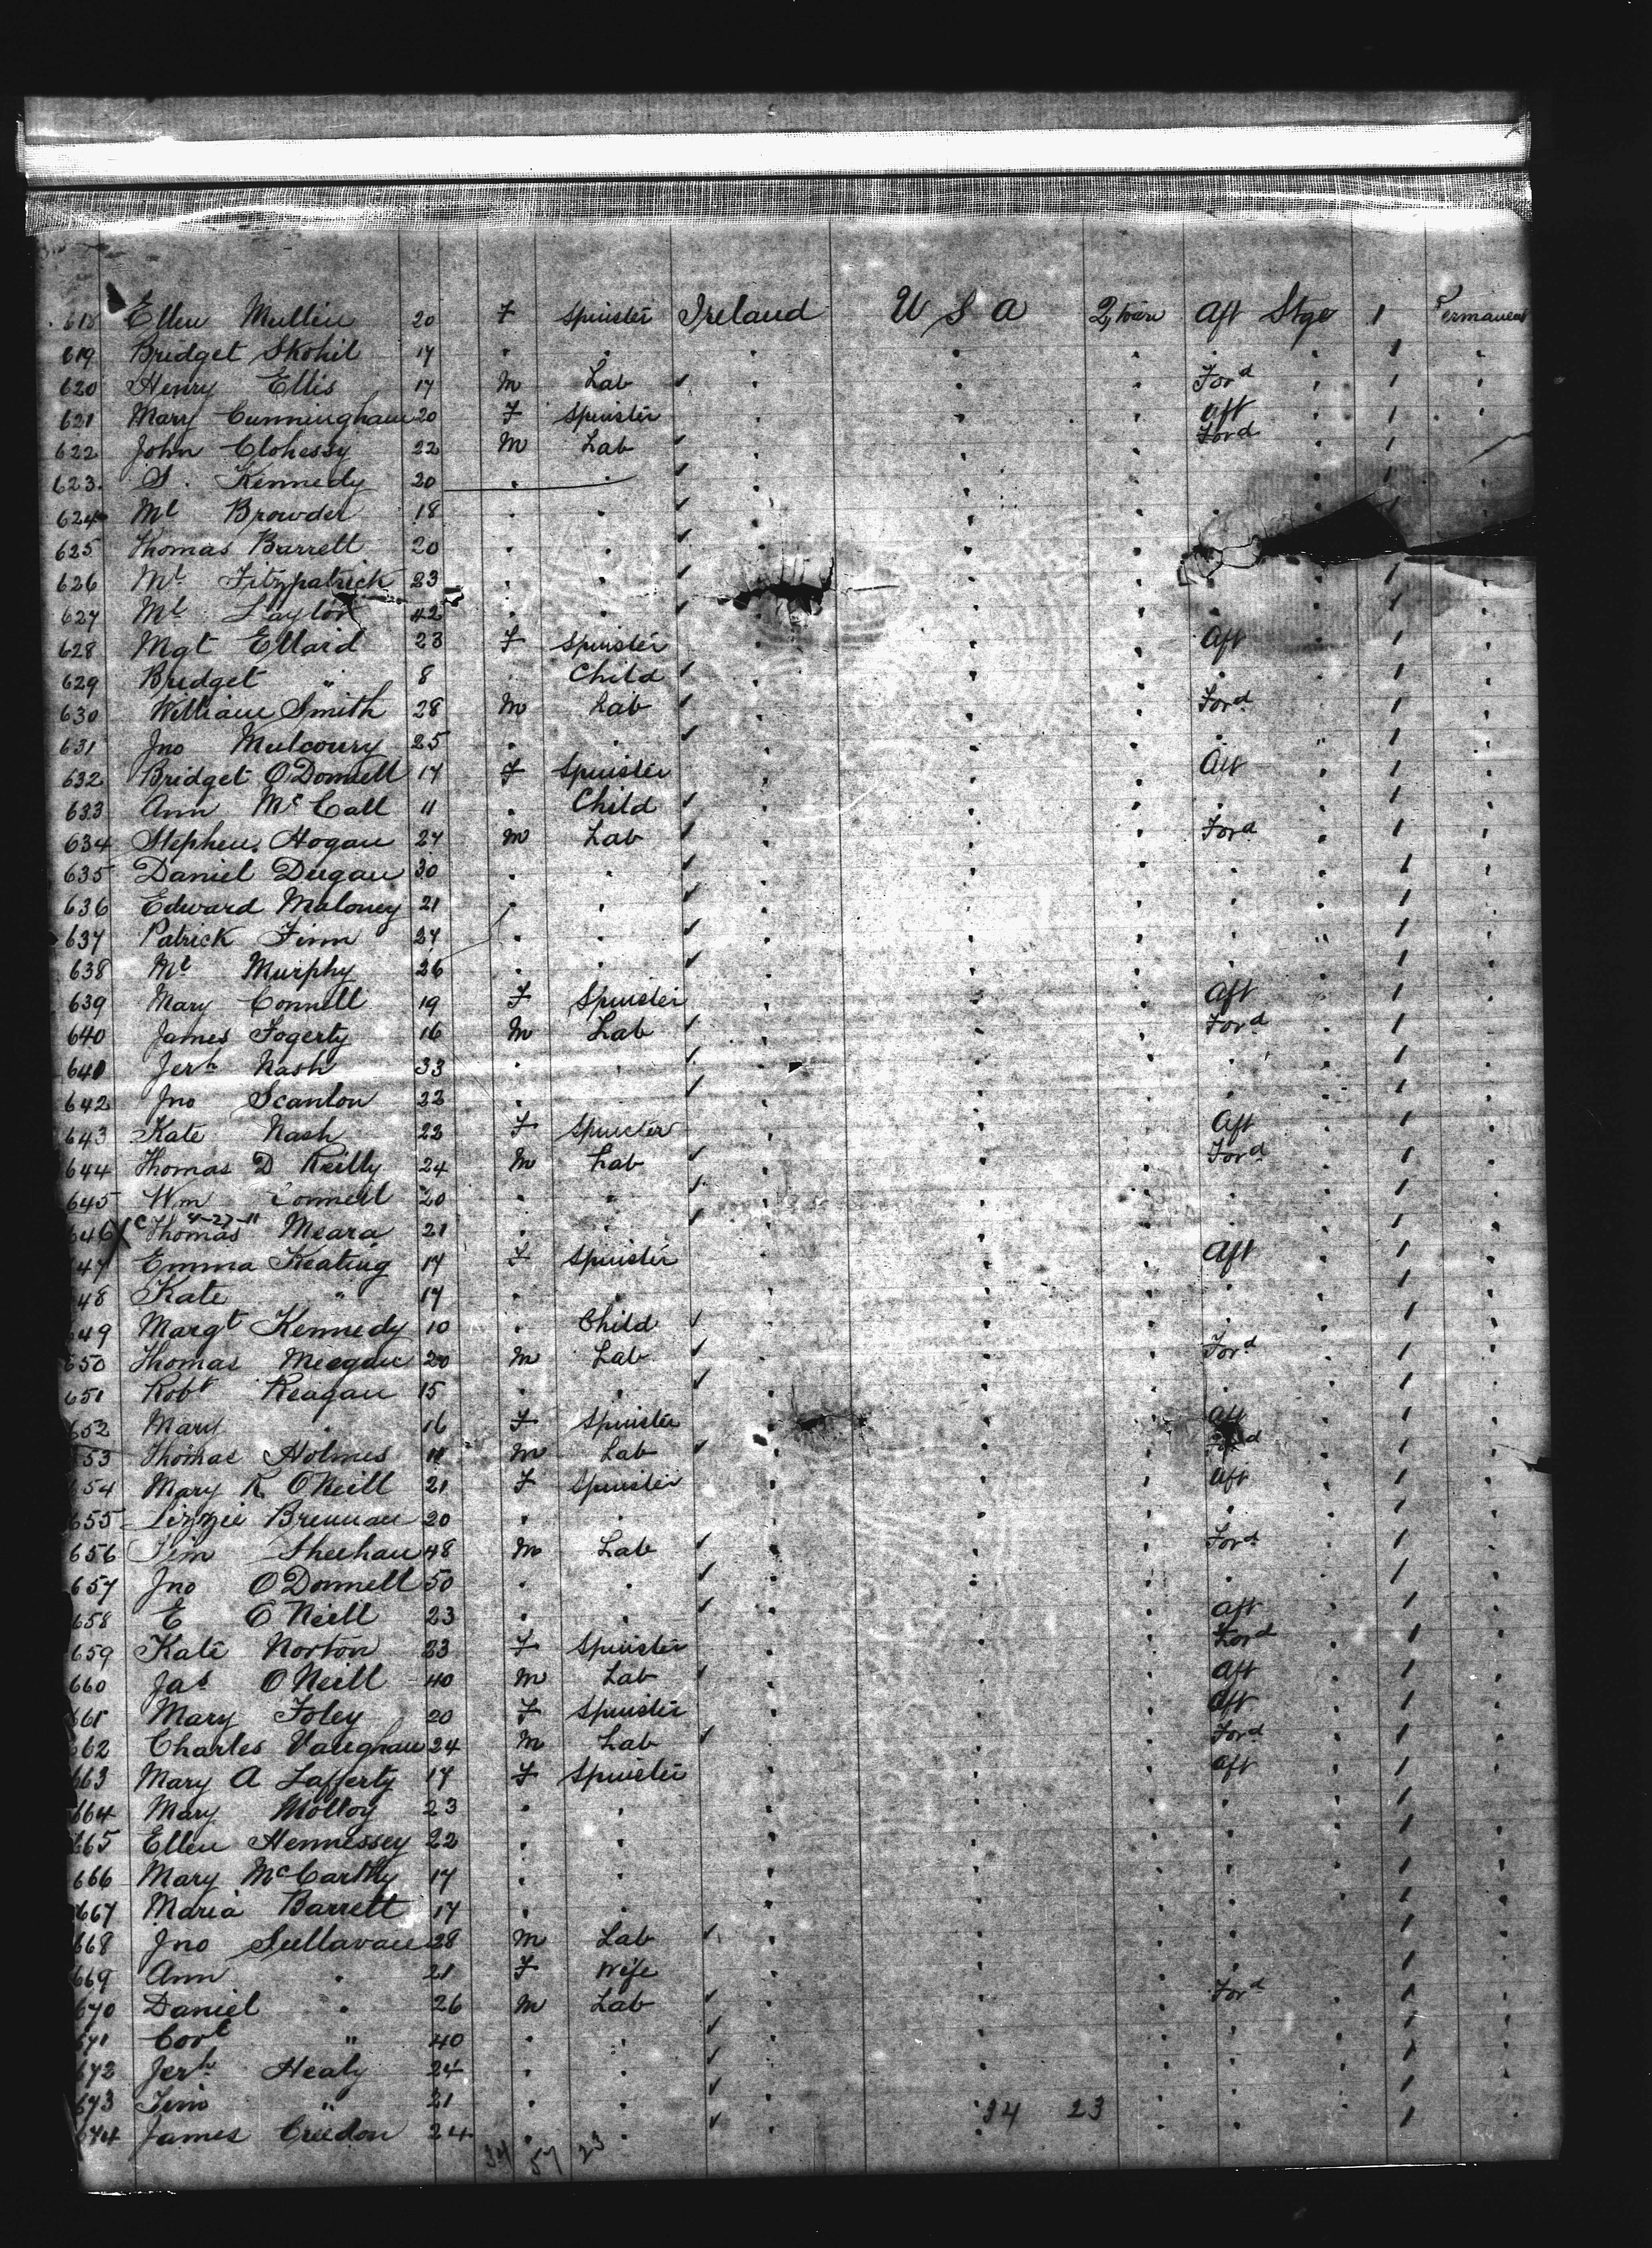 618 Ellen Mullin 20 F Spinster Ireland U S A Q,town Aft Stge 1 Permanent
619 Bridget Skohil 17 " " " " " " " 1 "
620 Henry Ellis 17 M Lab " " " Ford " 1 "
621 Mary Cunningham 20 F Spinster " " " Aft " 1 "
622 John Clohessy 22 M Lab " " " Ford " 1 "
623. S. Kennedy 20 " " " " " " 1 "
624 Ml Browder 18 " " " " " "
625 Thomas Barrett 20 " " " " "
626 Ml Fitzpatrick 23 " " " " 1
627 Ml Laylor 42 " " " " " 1
628 Mgt Ellard 23 F Spinster " " " Aft " 1 "
629 Bridget " 8 " Child " " " " " 1 "
630 William Smith 28 M Lab " " " Ford " 1 "
631 Jno Mulcoury 25 " " " " " " " 1 "
632 Bridget O'Donnell 17 F Spinster " " " Aft " 1 "
633 Ann McCall 11 " Child " " " " " 1 "
634 Stephen Hogan 27 M Lab " " " Ford " 1 "
635 Daniel Dugan 30 " " " " " " " 1 "
636 Edward Maloney 21 " " " " " " " 1 "
637 Patrick Finn 27 " " " " " " " 1 "
638 Ml Murphy 26 " " " " " " " 1 "
639 Mary Connell 19 F Spinster " " " Aft " 1 "
640 James Fogerty 16 M Lab " " " Ford " 1 "
641 Jerh Nash 33 " " " " " " " 1 "
642 Jno Scanlon 22 " " " " " " " 1 "
643 Kate Nash 22 F Spinster " " " Aft " 1 "
644 Thomas D Reilly 24 M Lab " " " Ford " 1 "
645 Wm Connell 20 " " " " " " " 1 "
4-27-11
646 X C Thomas Meara 21 " " " " " " " 1 "
47 Emma Keating 17 F Spinster " " " Aft " 1 "
48 Kate " 17 " " " " " " " 1 "
649 Margt Kennedy 10 " Child " " " " " 1 "
650 Thomas Meegan 20 M Lab " " " Ford " 1 "
651 Robt Reagan 15 " " " " " " " 1 "
652 Mary " 16 F Spinster " " " Aft " 1 "
653 Thomas Holmes 11 M Lab " " " Ford " 1 "
654 Mary K O'Neill 21 F Spinster " " " Aft " 1 "
655 Lizzie Brennan 20 " " " " " " " 1 "
656 Tim Sheehan 48 M Lab " " " Ford " 1 "
657 Jno O'Donnell 50 " " " " " " " 1 "
658 E O'Neill 23 " " " " " Aft " 1 "
659 Kate Norton 23 F Spinster " " " Ford " 1 "
660 Jas O'Neill 40 M Lab " " " Aft " 1 "
661 Mary Foley 20 F Spinster " " " Aft " 1 "
662 Charles Vaughan 24 M Lab " " " Ford " 1 "
663 Mary A Lafferty 17 F Spinster " " " Aft " 1 "
664 Mary Molloy 23 " " " " " " " 1 "
665 Ellen Hennessey 22 " " " " " " " 1 "
666 Mary McCarthy 17 " " " " " " " 1 "
667 Maria Barrett 17 " " " " " " " 1 "
668 Jno Sullavan 28 M Lab " " " " " 1 "
669 Ann " 21 F Wife " " " " " 1 "
670 Daniel " 26 M Lab " " " Ford " 1 "
671 Cort " 40 " " " " " " " 1 "
672 Jerh Healy 24 " " " " " " " 1 "
673 Tim " 21 " " " " " " " 1 "
674 James Creedon 24 " " " 34 23 " " " 1 "
34 57 23